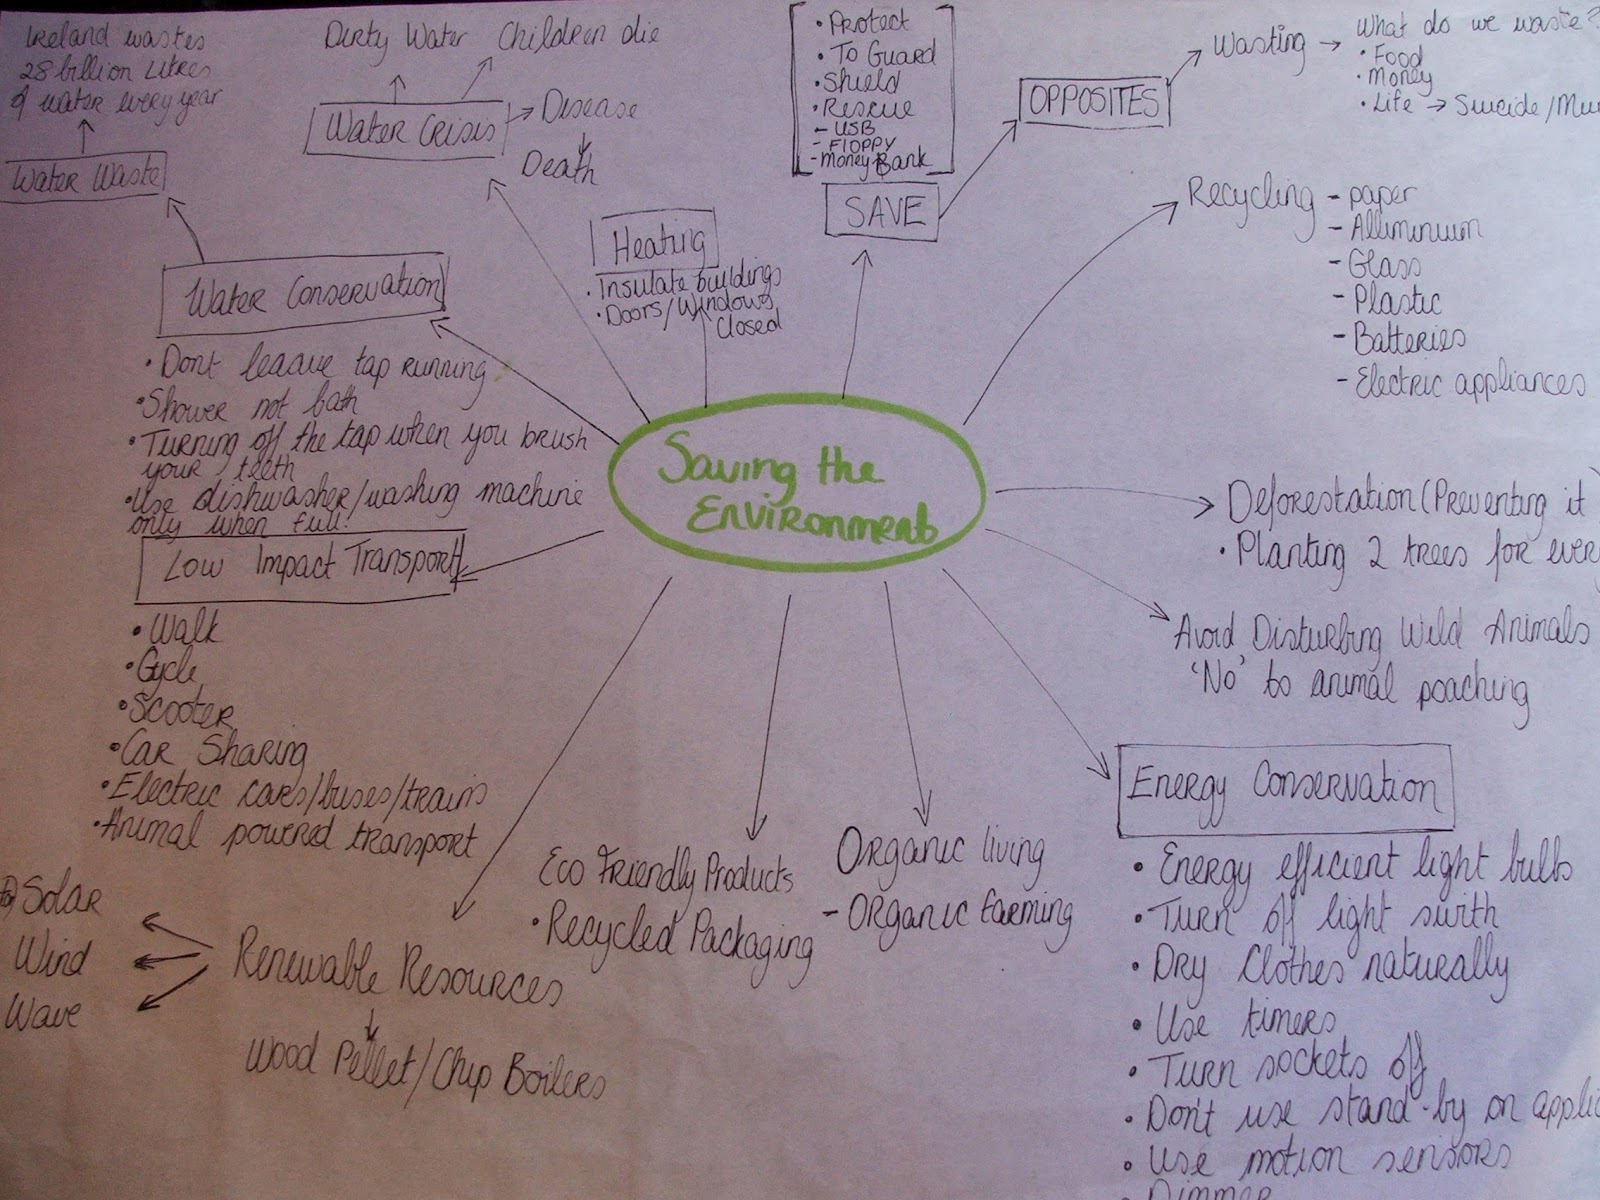 Saving the
Environment
Ireland wastes
28 billion Litres
of water every year
Water Waste
Water Conservation
• Dont leaave tap running
• Shower not bath
• Turning off the tap when you brush
your teeth
• Use dishwasher/washing machine
only when full!
Dirty Water
Children die
Water Crisis
Disease
Death
Heating
• Insulate buildings
• Doors/Windows
Closed
• Protect
• To Guard
• Shield
• Rescue
- USB
- Floppy
- Money Bank
SAVE
OPPOSITES
Wasting
What do we waste?
• Food
• Money
• Life → Suicide/Mu
Recycling - paper
- Alluminium
- Glass
- Plastic
- Batteries
- Electric appliances
Deforestation (Preventing it)
• Planting 2 trees for ever
Avoid Disturbing Wild Animals
'No' to animal poaching
Energy Conservation
• Energy efficient light bulbs
• Turn off light swith
• Dry Clothes naturally
• Use timers
• Turn sockets off
• Don't use stand-by on applic
• Use motion sensors
Dimmer
Organic living
- Organic farming
Eco Friendly Products
• Recycled Packaging
Renewable Resources
Solar
Wind
Wave
Wood Pellet/Chip Boilers
Low Impact Transport
• Walk
• Cycle
• Scooter
• Car Sharing
• Electric cars/buses/trains
• Animal powered transport